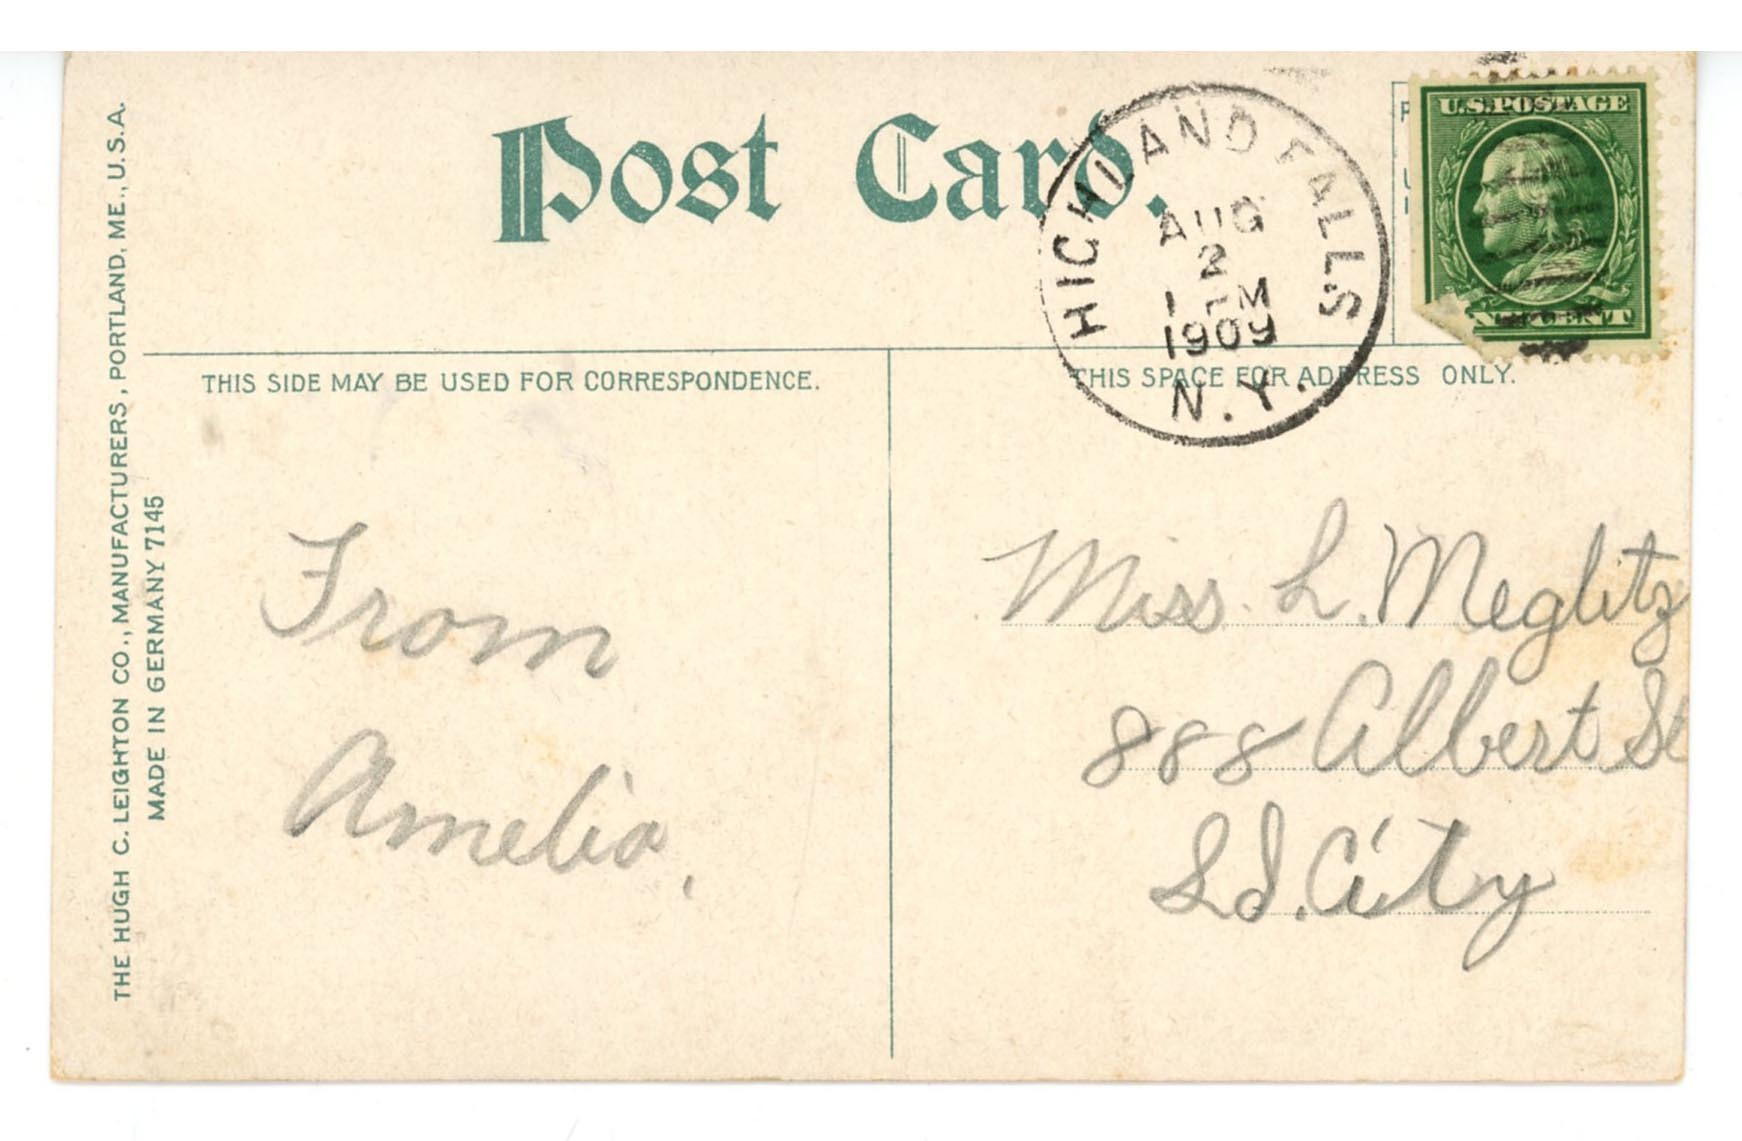 Post Card.
HIGHLAND FALLS
AUG
2
1 PM
1909
N.Y.
U.S. POSTAGE
CENT
THIS SIDE MAY BE USED FOR CORRESPONDENCE.
THIS SPACE FOR ADDRESS ONLY.
THE HUGH C. LEIGHTON CO., MANUFACTURERS, PORTLAND, ME., U.S.A.
MADE IN GERMANY 7145
From
Amelia,
Miss. L. Meglitz
888 Albert St
City